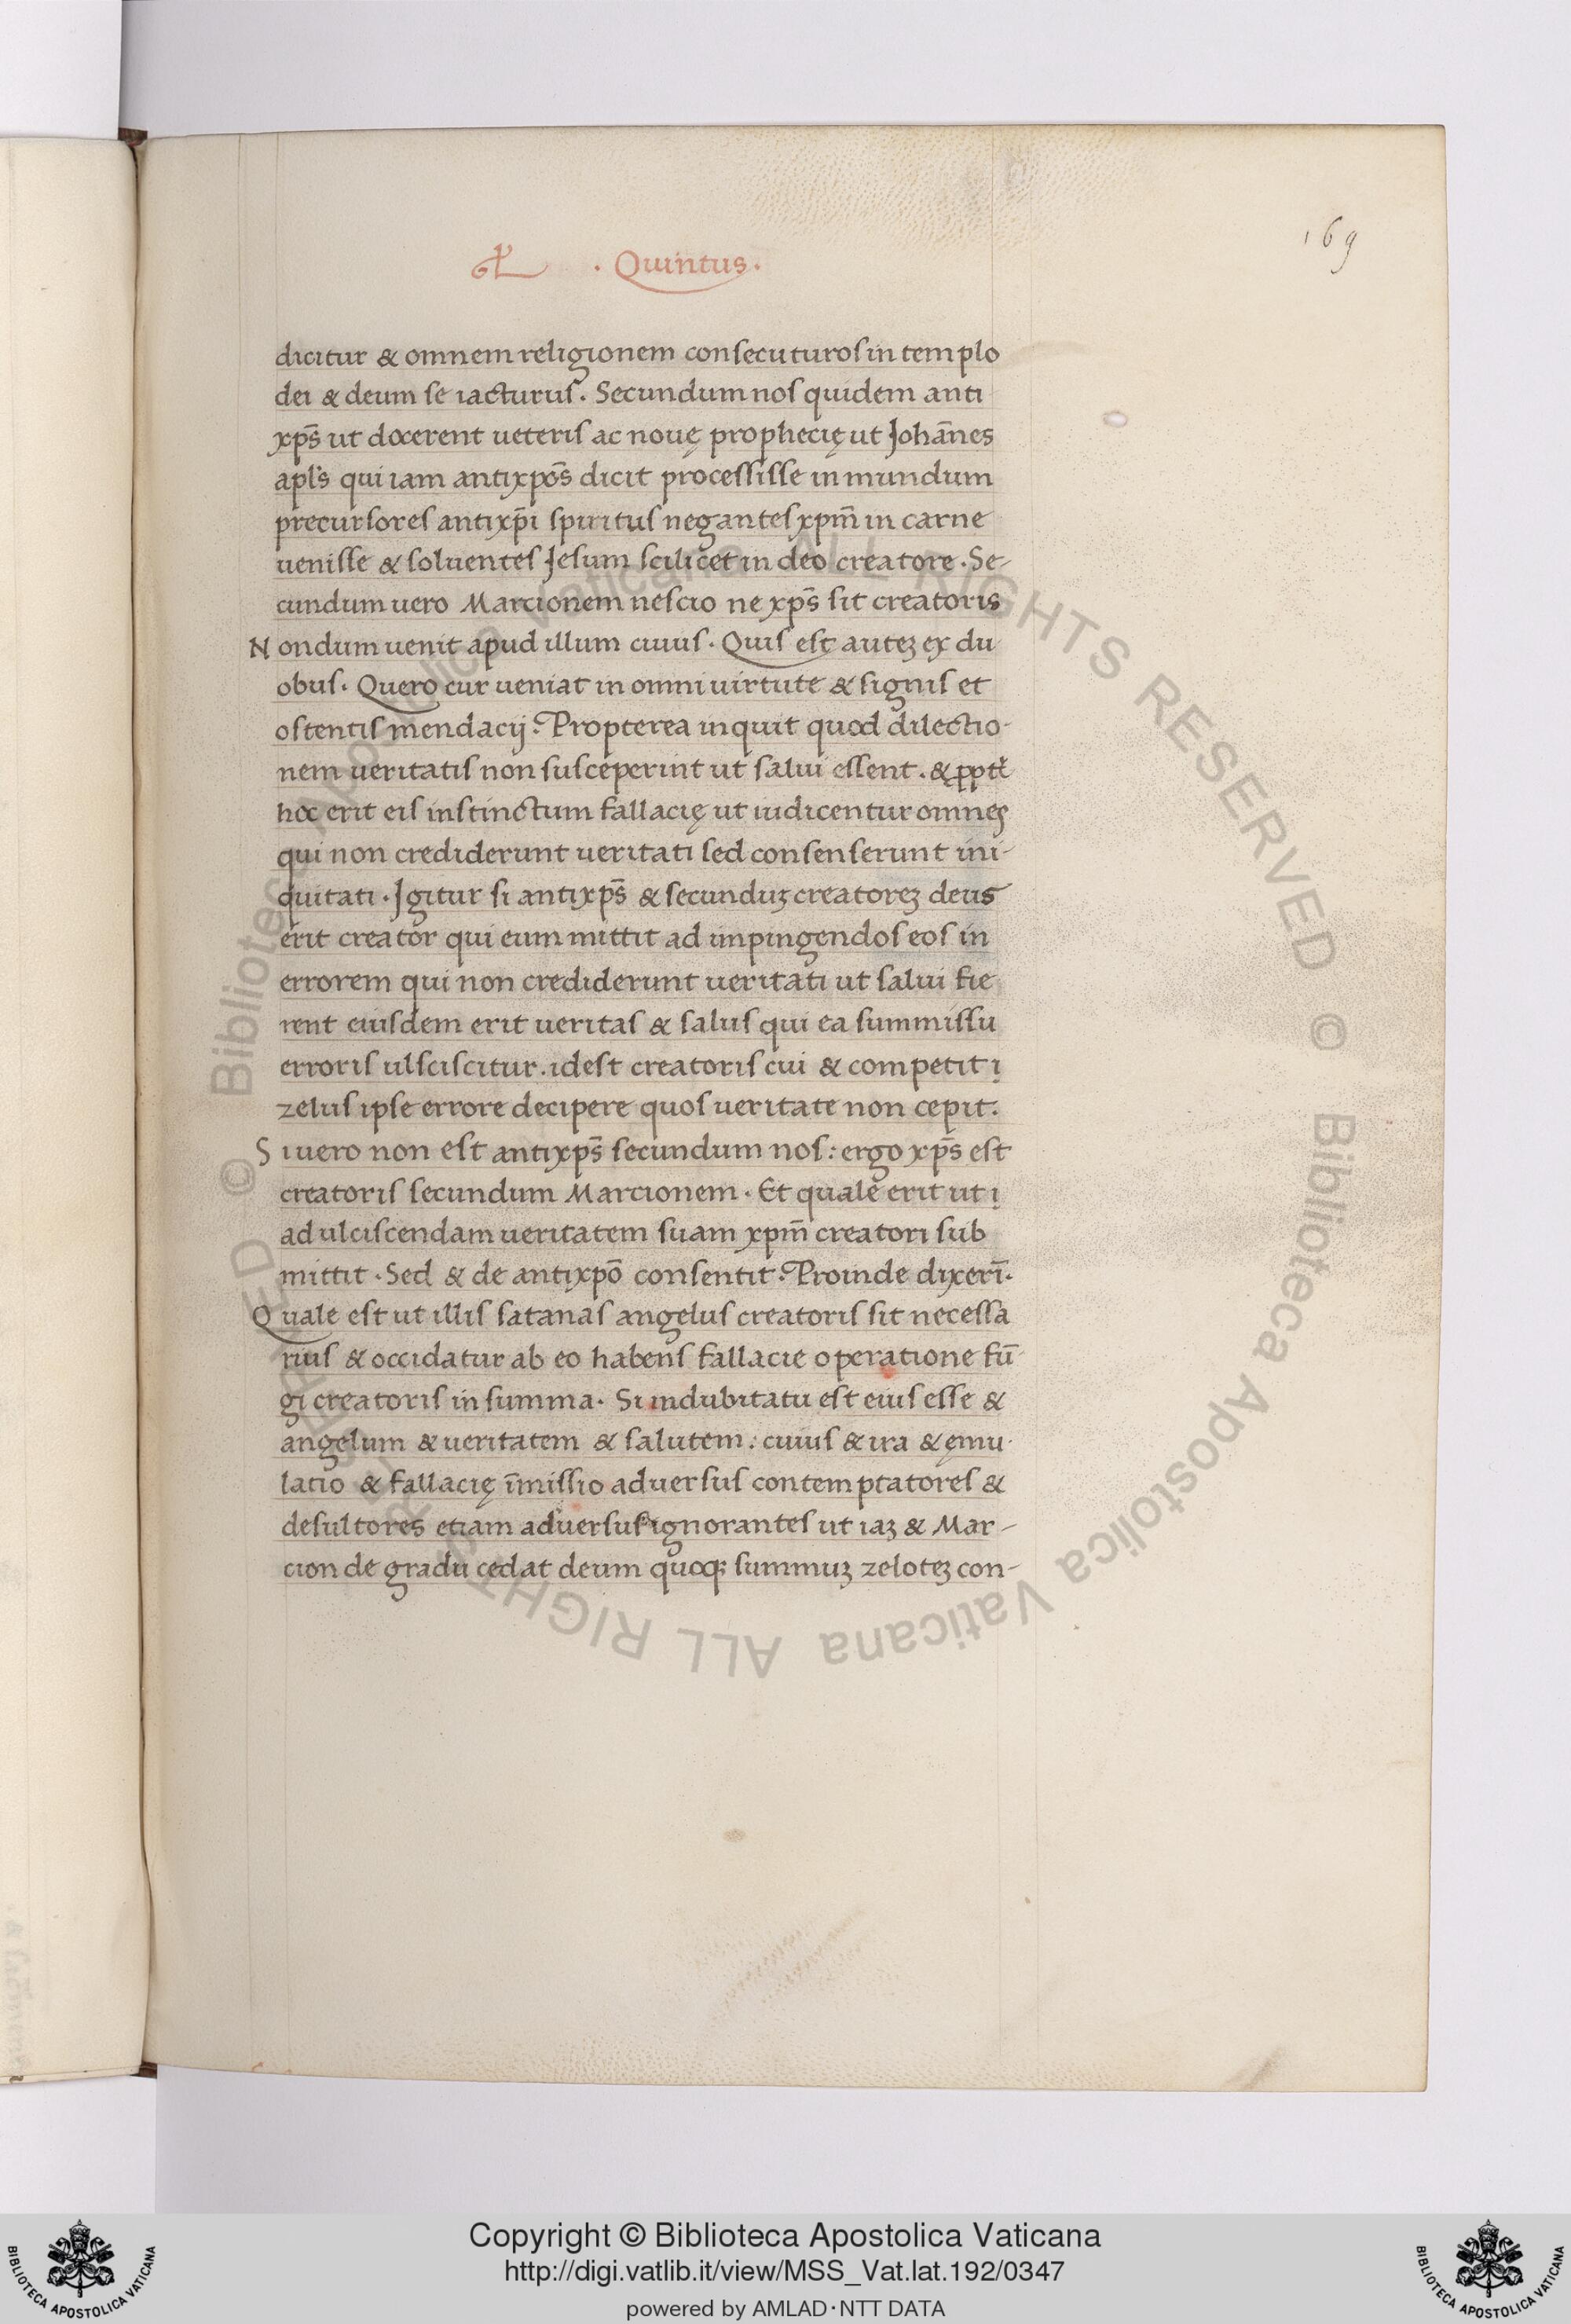 169
· Quintus ·
dicitur & omnem religionem consecuturos in templo
dei & deum se iacturus. Secundum nos quidem anti
xp̄s ut docerent ueteris ac nouę prophecię ut Johān̄es
apl's qui iam antixpōs dicit processisse in mundum
precursores antixp̄i spiritus negantes xpm̄ in carne
uenisse & soluentes Jesum scilicet in deo creatore. Se-
cundum uero Marcionem nescio ne xp̄s sit creatoris
Nondum uenit apud illum cuius. Quis est auteꝫ ex du
obus. Quero cur ueniat in omni uirtute & signis et
ostentis mendacij? Propterea inquit quod dilectio-
nem ueritatis non susceperint ut salui essent. & ꝓpt̄
hoc erit eis instinctum fallacię ut iudicentur omnes
qui non crediderunt ueritati sed consenserunt ini-
quitati. Igitur si antixp̄s & secunduꝫ creatoreꝫ deus
erit creator qui eum mittit ad impingendos eos in
errorem qui non crediderunt ueritati ut salui fie
rent eiusdem erit ueritas & salus qui ea summissu
erroris ulsciscitur. idest creatoris cui & competit i
zelus ipse errore decipere quos ueritate non cepit.
Si uero non est antixp̄s secundum nos: ergo xp̄s est
creatoris secundum Marcionem. Et quale erit ut i
ad ulciscendam ueritatem suam xpm̄ creatori sub
mittit. Sed & de antixpō consentit? Proinde dixerī.
Quale est ut illis satanas angelus creatoris sit necessa
rius & occidatur ab eo habens fallacie operatione fū-
gi creatoris in summa. Si indubitatu est eius esse &
angelum & ueritatem & salutem: cuius & ira & ęmu-
latio & fallacię īmissio aduersus contemptatores &
desultores etiam aduersus ignorantes ut iaꝫ & Mar-
cion de gradu cedat deum quoqꝫ summuꝫ zeloteꝫ con-
© Biblioteca Apostolica Vaticana ALL RIGHTS RESERVED © Biblioteca Apostolica Vaticana ALL RIGHTS RESERVED
BIBLIOTECA APOSTOLICA VATICANA
Copyright © Biblioteca Apostolica Vaticana
http://digi.vatlib.it/view/MSS_Vat.lat.192/0347
powered by AMLAD·NTT DATA
BIBLIOTECA APOSTOLICA VATICANA